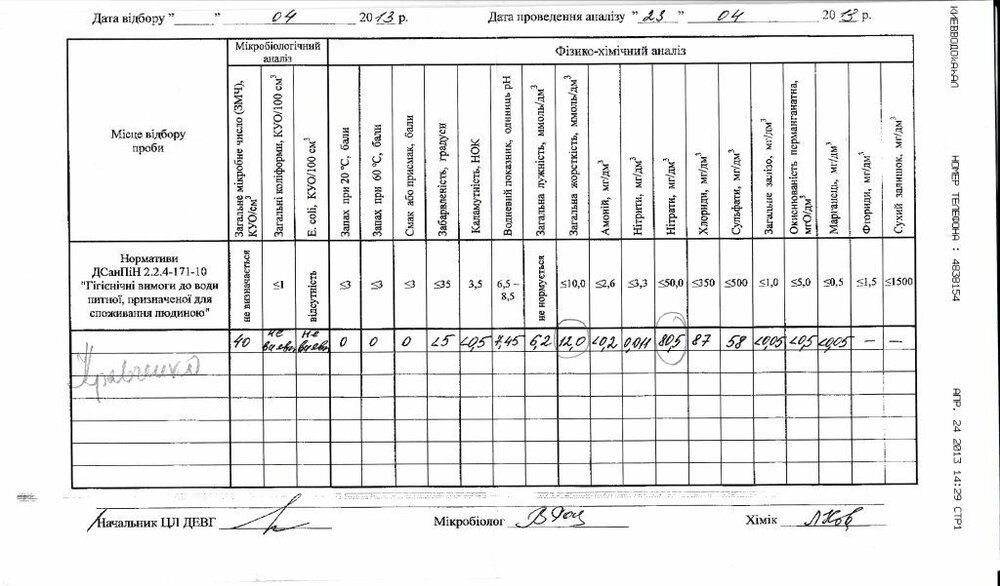 Дата відбору "      "      04      2013 р.      Дата проведення аналізу " 23 "      04      2013 р.
Місце відбору проби
Мікробіологічний аналіз
Фізико-хімічний аналіз
Загальне мікробне число (ЗМЧ), КУО/см³
Загальні коліформи, КУО/100 см³
E. coli, КУО/100 см³
Запах при 20 °С, бали
Запах при 60 °С, бали
Смак або присмак, бали
Забарвленість, градуси
Каламутність, НОК
Водневий показник, одиниць рН
Загальна лужність, ммоль/дм³
Загальна жорсткість, ммоль/дм³
Амоній, мг/дм³
Нітрити, мг/дм³
Нітрати, мг/дм³
Хлориди, мг/дм³
Сульфати, мг/дм³
Загальне залізо, мг/дм³
Окиснюваність перманганатна, мгО/дм³
Марганець, мг/дм³
Фториди, мг/дм³
Сухий залишок, мг/дм³
Нормативи
ДСанПіН 2.2.4-171-10
"Гігієнічні вимоги до води
питної, призначеної для
споживання людиною"
не визначається ≤1 відсутність ≤3 ≤3 ≤3 ≤35 3,5 6,5 – 8,5 не нормується ≤10,0 ≤2,6 ≤3,3 ≤50,0 ≤350 ≤500 ≤1,0 ≤5,0 ≤0,5 ≤1,5 ≤1500
40 не не 0 0 0 <5 <0,5 7,45 6,2 12,0 <0,2 0,011 80,5 87 58 <0,05 <0,5 <0,05 — —
Кравченко
Начальник ЦЛ ДЕВГ
Мікробіолог
Хімік
КИЕВВОДОКАНАЛ      НОМЕР ТЕЛЕФОНА : 4838154      АПР. 24 2013 14:29 СТР1